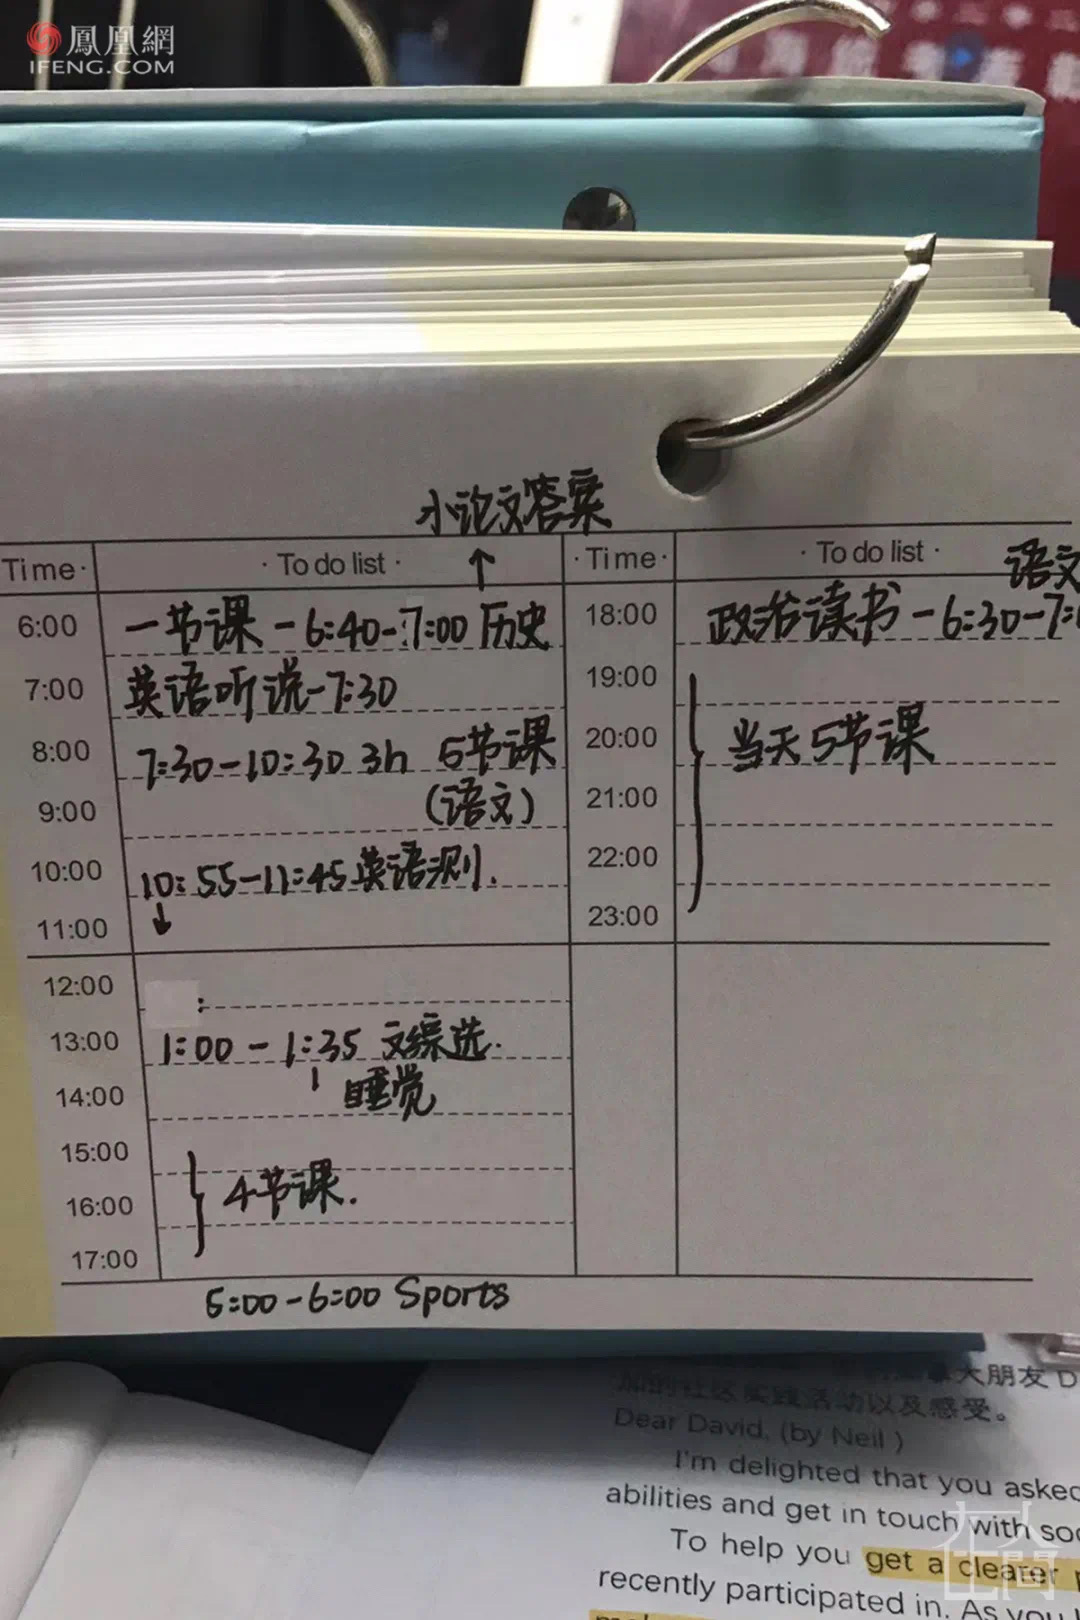 鳳凰網
IFENG.COM
小论文答案
↑
Time · · To do list · · Time · · To do list ·
语文
6:00 一节课 - 6:40-7:00 历史
7:00 英语听说-7:30
8:00 7:30-10:30 3h 5节课
9:00 (语文)
10:00 10:55-11:45 英语测.
11:00 ↓
12:00 :
13:00 1:00 - 1:35 文综选.
14:00 睡觉
15:00
16:00 4节课.
17:00
5:00-6:00 Sports
18:00 政治读书 - 6:30-7:
19:00
20:00 当天5节课
21:00
22:00
23:00
大朋友 D
加的社区实践活动以及感受。
Dear David, (by Neil )
I'm delighted that you asked
abilities and get in touch with soc
To help you get a clearer
recently participated in. As you
在人間